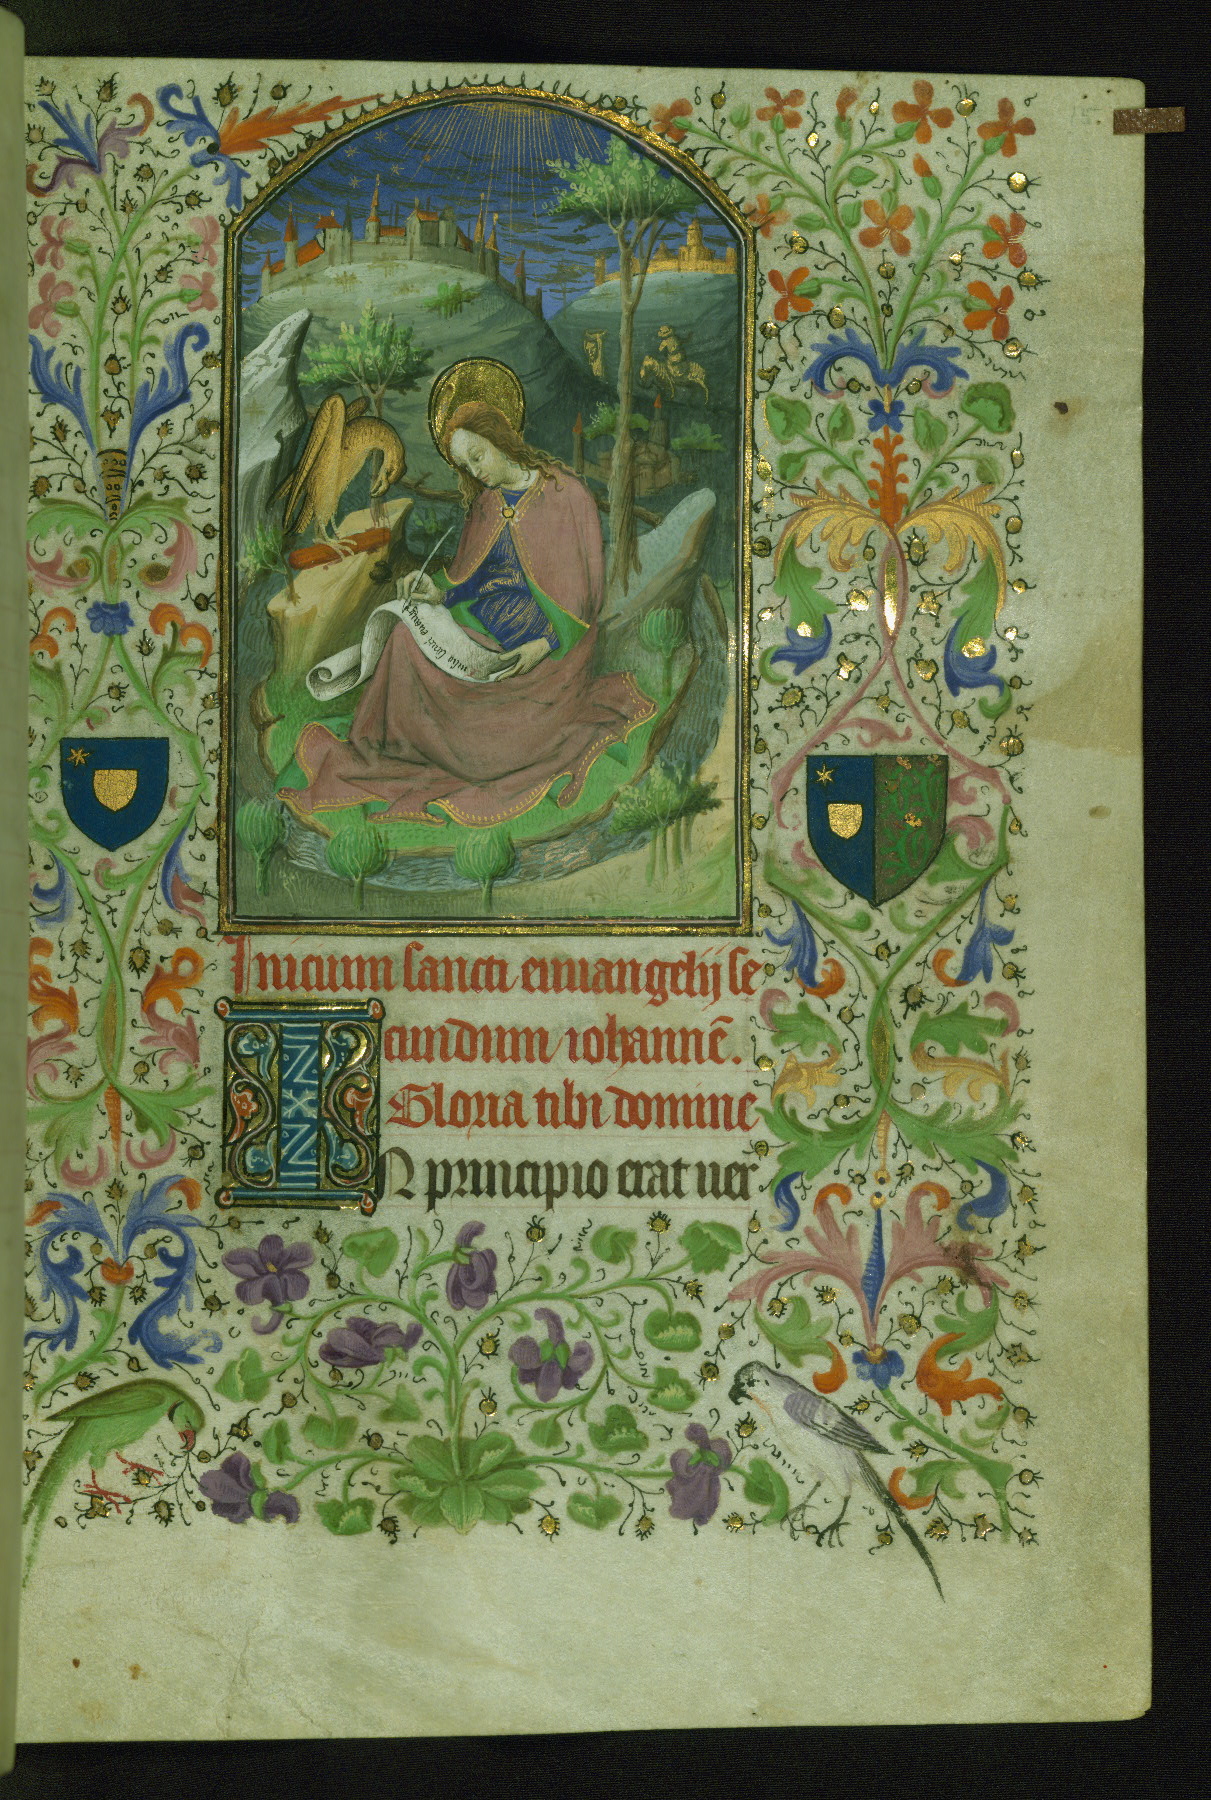 Inicium sancti euuangelij se
cundum iohannē.
Gloria tibi domine
IN principio erat uer